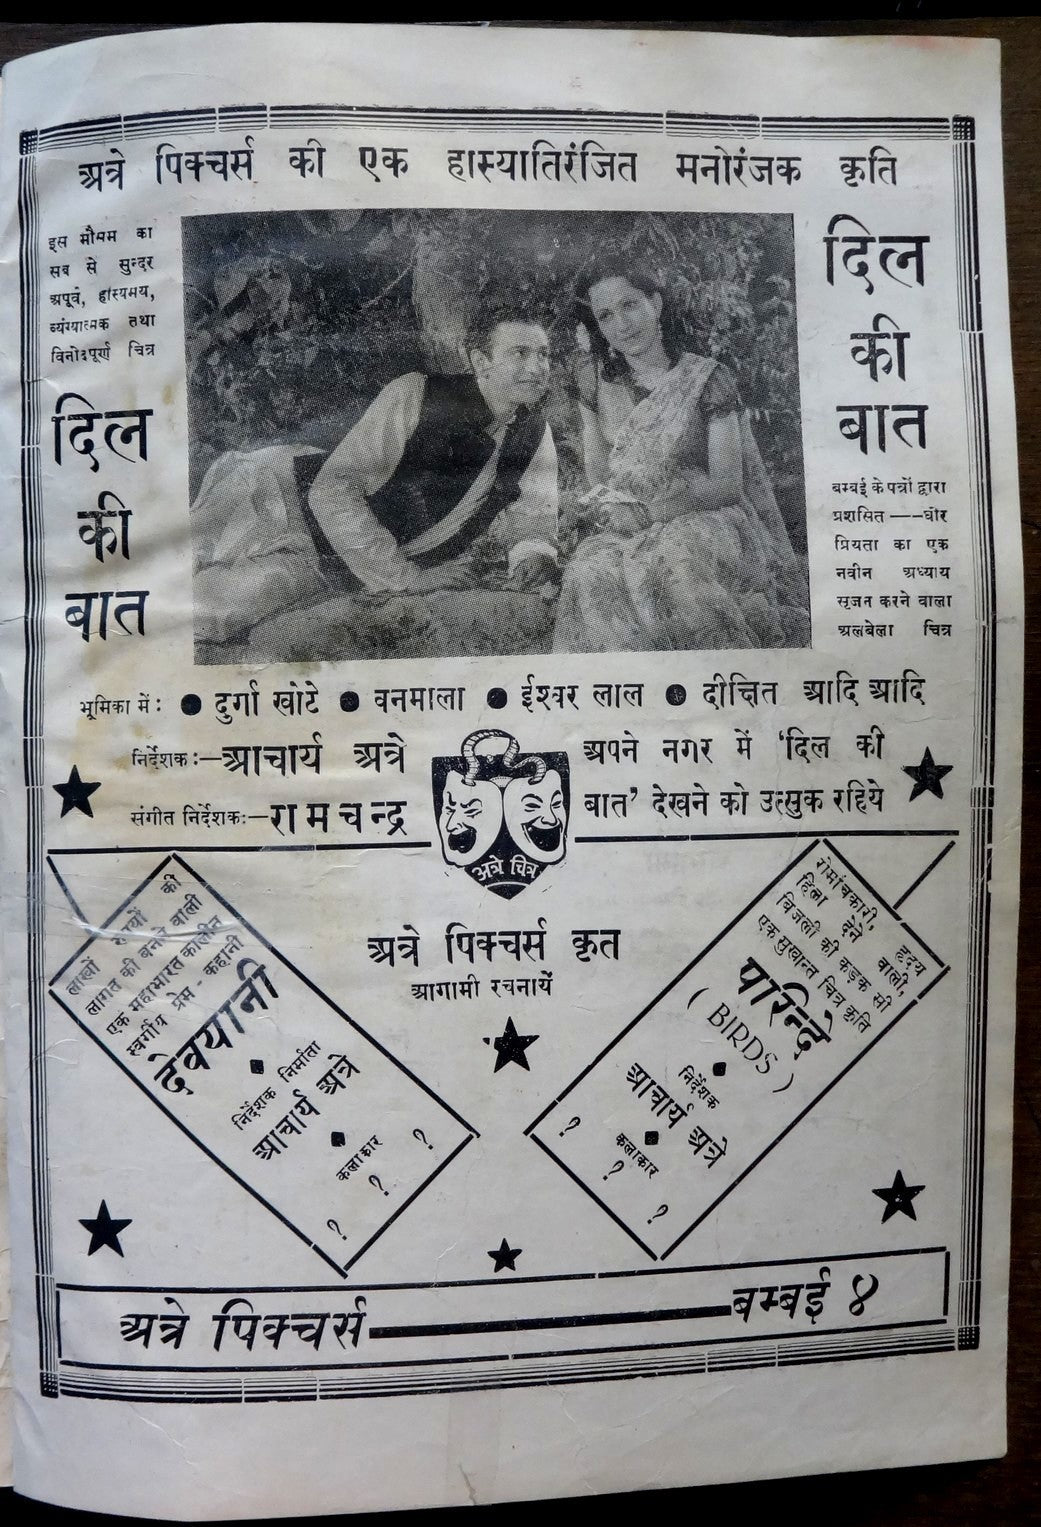 अत्रे पिक्चर्स की एक हास्यातिरंजित मनोरंजक कृति
इस मौसम का
सब से सुन्दर
अपूर्व, हास्यमय,
व्यंग्यात्मक तथा
विनोदपूर्ण चित्र
दिल
की
बात
दिल
की
बात
बम्बई के पत्रों द्वारा
प्रशसित —— घोर
प्रियता का एक
नवीन अध्याय
सृजन करने वाला
अलबेला चित्र
भूमिका में: ● दुर्गा खोटे ● वनमाला ● ईश्वर लाल ● दीक्षित आदि आदि
निर्देशक:—आचार्य अत्रे
संगीत निर्देशक:—रामचन्द्र
अपने नगर में ‘दिल की
बात’ देखने को उत्सुक रहिये
अत्रे चित्र
अत्रे पिक्चर्स कृत
आगामी रचनायें
लाखों रुपयों की
लागत की बनने वाली
एक महाभारत कालीन
स्वर्गीय प्रेम - कहानी
देवयानी
निर्देशक निर्माता
आचार्य अत्रे
कलाकार
? ? ?
रोमांचकारी, हृदय
हिला देने वाली,
बिजली की कड़क सी
एक सुखान्त चित्र कृति
परिन्दे
( BIRDS )
निर्देशक
आचार्य अत्रे
कलाकार
? ? ?
अत्रे पिक्चर्स——बम्बई ४